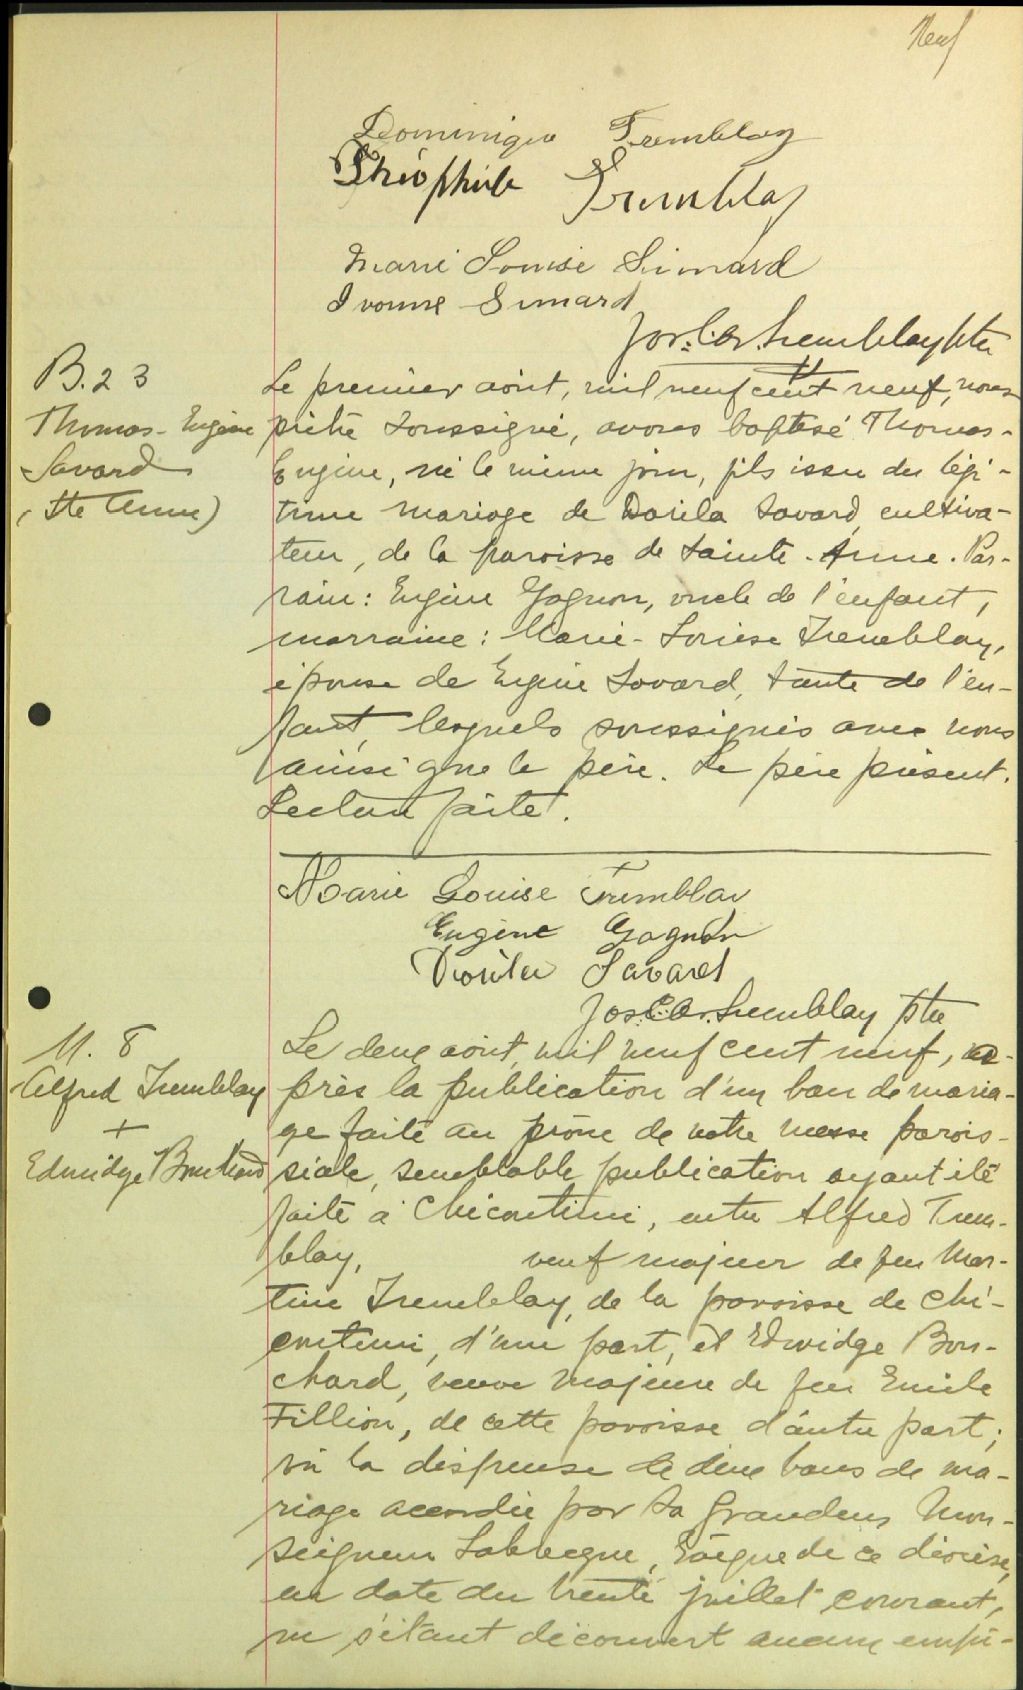 Neuf
Dominique Tremblay
Théophile Tremblay
Marie Louise Simard
Ivonne Simard
Jos. C. A. Tremblay ptre
B. 23
Thomas-Eugène
Savard
(Ste Anne)
Le premier août, mil neuf cent neuf, nous
prêtre soussigné, avons baptisé Thomas-
Eugène, né le même jour, fils issu du légi-
time mariage de Dorila Savard, cultiva-
teur, de la paroisse de Sainte-Anne. Par-
rain: Eugène Gagnon, oncle de l'enfant,
marraine: Marie-Louise Tremblay,
épouse de Eugène Savard, tante de l'en-
fant, lesquels soussignés avec nous
ainsi que le père. Le père présent.
Lecture faite.
Marie Louise Tremblay
Eugène Gagnon
Dorila Savard
Jos. C. A. Tremblay ptre
M. 8
Alfred Tremblay
+
Edwidge Bouchard
Le deux août, mil neuf cent neuf, a-
près la publication d'un ban de maria-
ge faite au prône de notre messe parois-
siale, semblable publication ayant été
faite à Chicoutimi, entre Alfred Trem-
blay, veuf majeur de feu Mar-
tine Tremblay, de la paroisse de Chi-
coutimi, d'une part, et Edwidge Bou-
chard, veuve majeure de feu Emile
Fillion, de cette paroisse d'autre part;
vu la dispense de deux bans de ma-
riage accordée par Sa Grandeur Mon-
seigneur Labrecque, Evêque de ce diocèse,
en date du trente juillet courant,
ne s'étant découvert aucun empê-